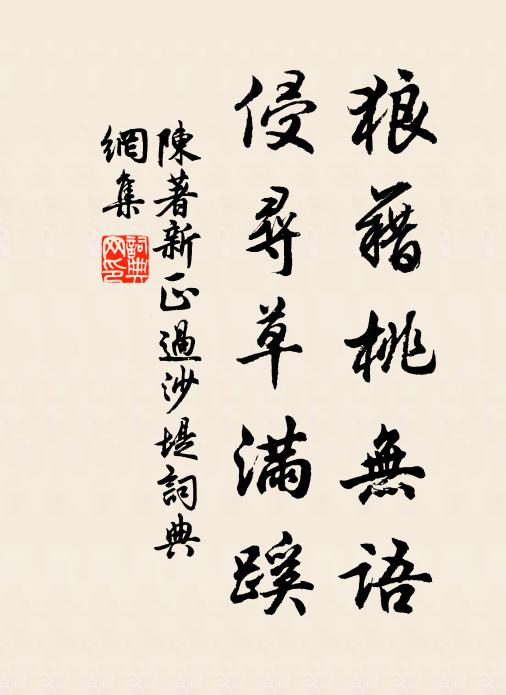 狼藉桃無語
侵尋草滿蹊
陳著新正過沙堤詞典
網集
詞典网印